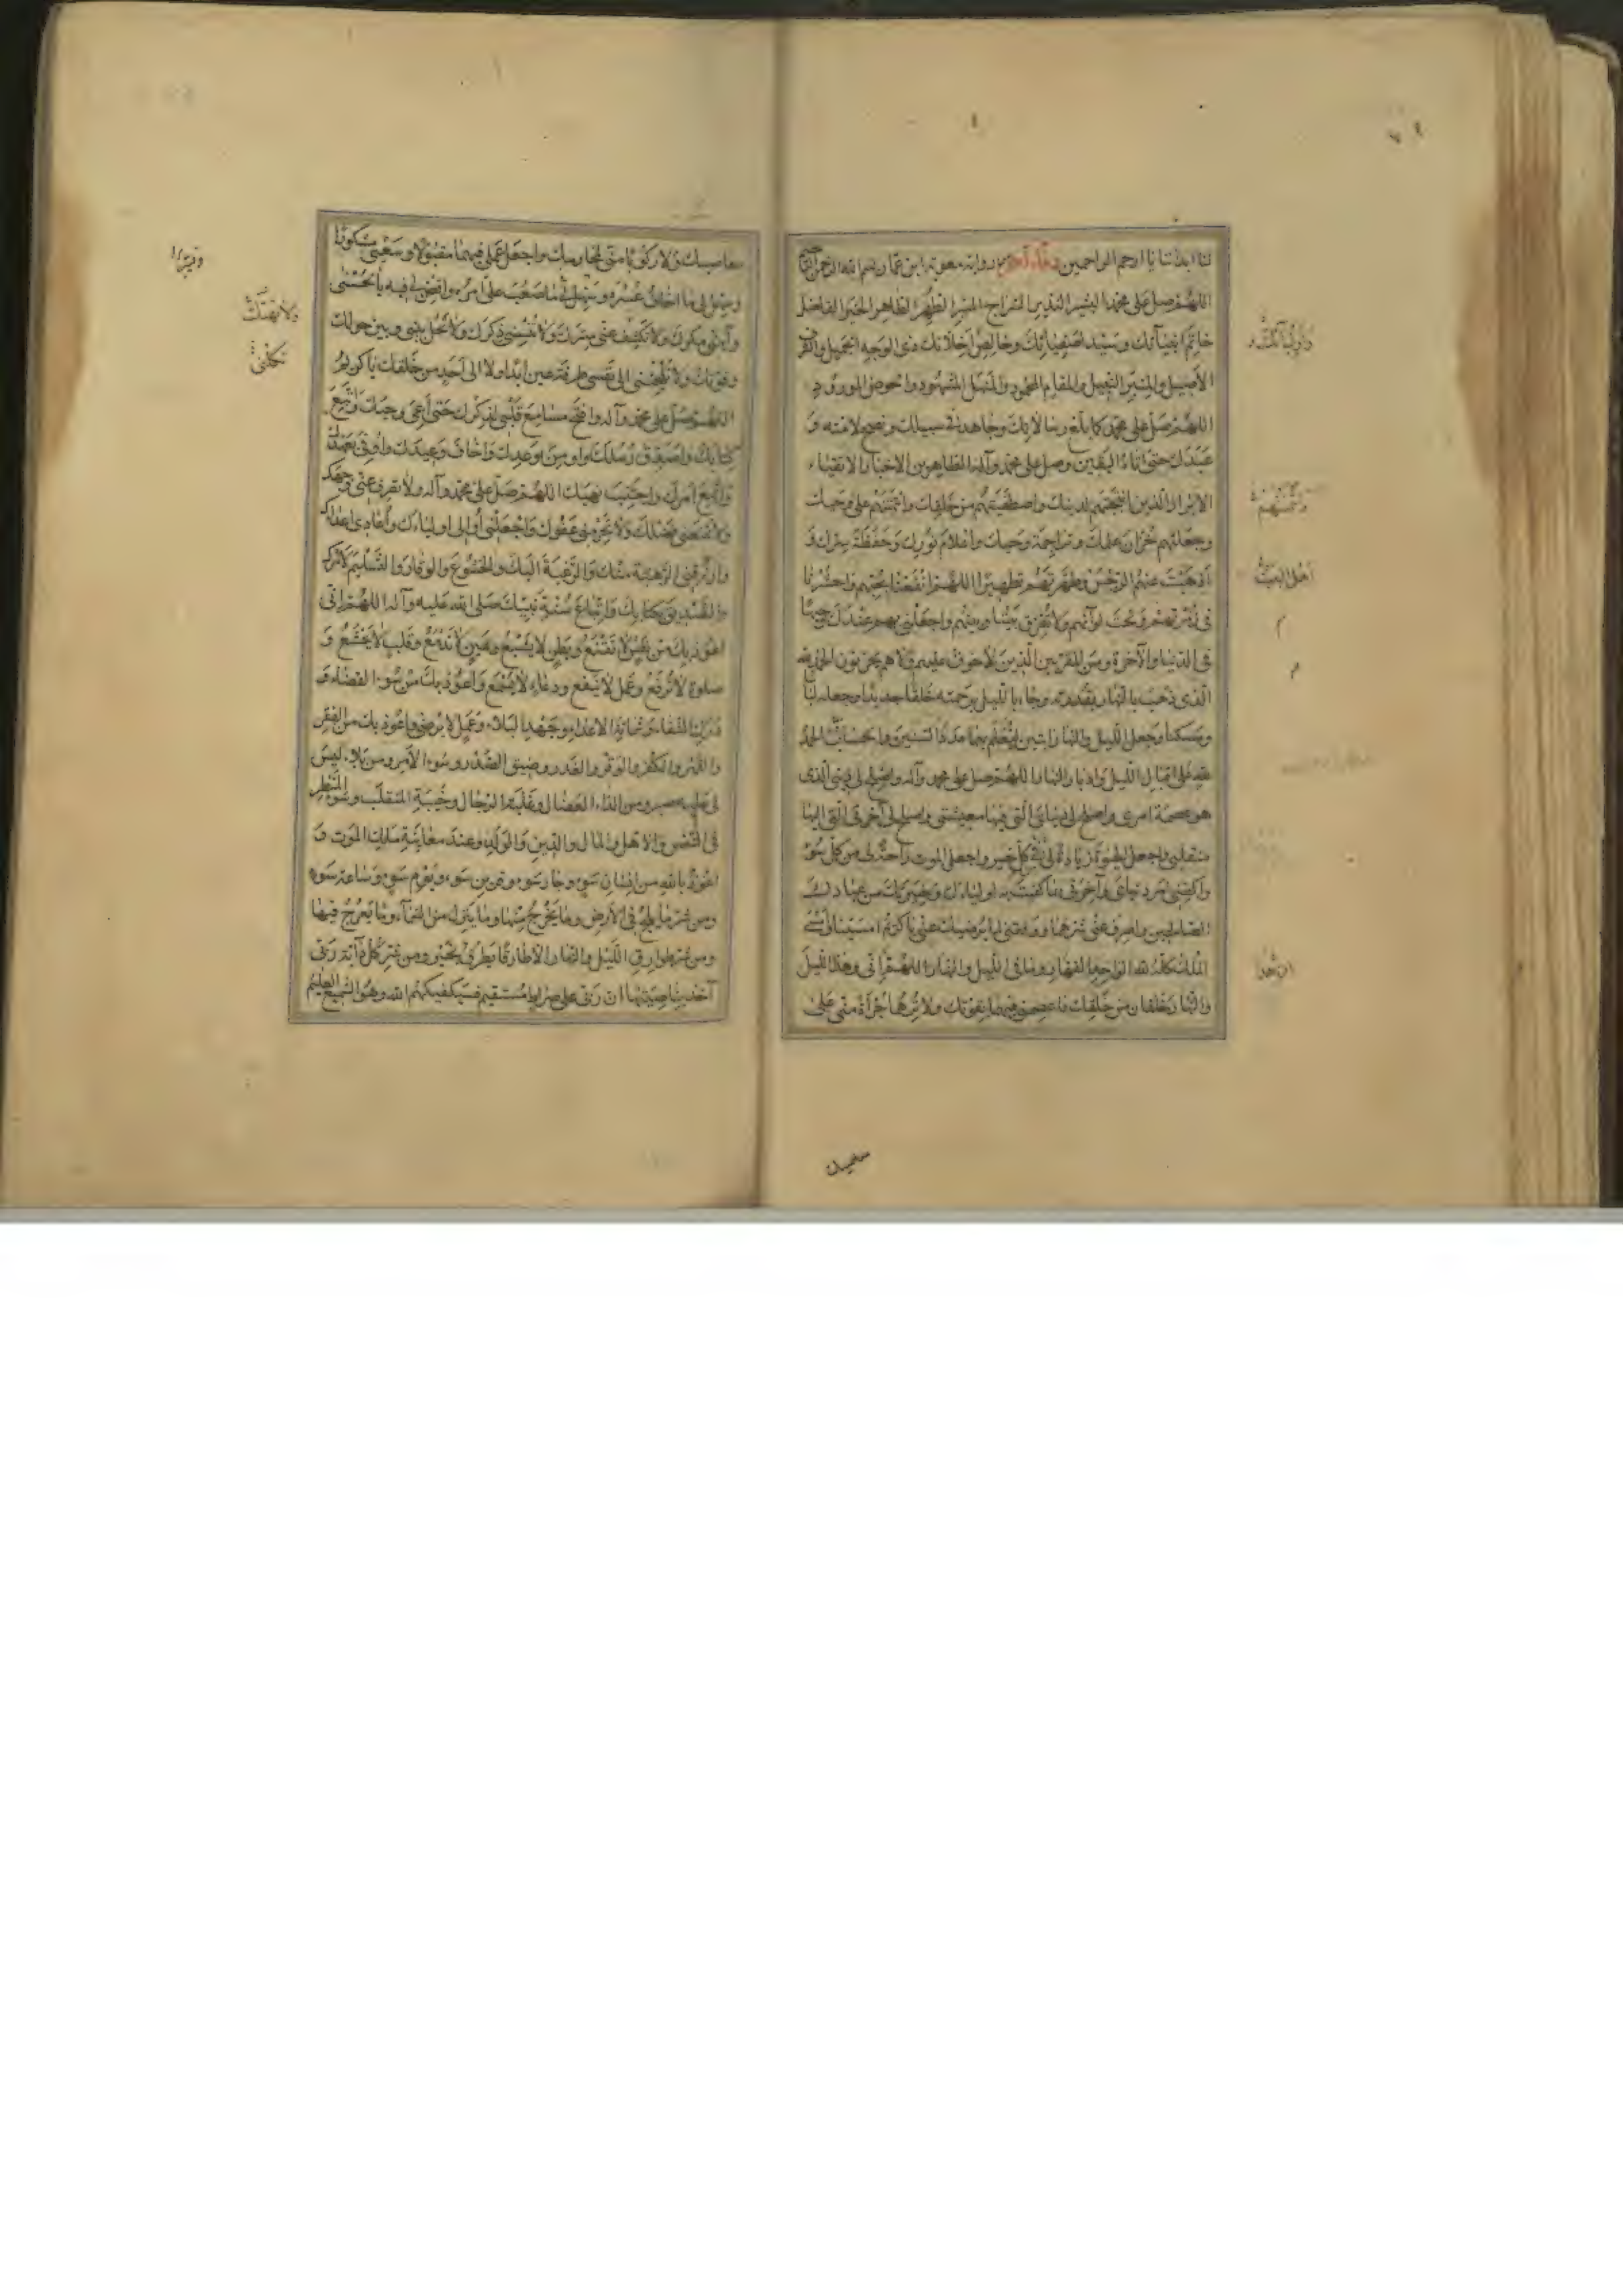 لنا ابدتنا يا ارحم الراحمين دعاء آخر رواية معوية ابن عمار بسم الله الرحمن الرحيم
اللهم صل على محمد البشير النذير السراج المنير الطهر الطاهر الخير الفاضل
خاتم انبيائك وسيد اصفيائك وخالص اخلائك ذي الوجه الجميل والشرف
الاصيل والمنبر النبيل والمقام المحمود والمنهل المشهود والحوض المورود
اللهم صل على محمد كما بلغ رسالاتك وجاهد في سبيلك ونصح لامته و
عبدك حتى اتاه اليقين وصل على محمد وآله الطاهرين الاخيار الاتقياء
الابرار الذين انتجبتهم لدينك واصطفيتهم من خلقك وائتمنتهم على وحيك
وجعلتهم خزان علمك وتراجمة وحيك واعلام نورك وحفظة سرك و
اذهبت عنهم الرجس وطهرتهم تطهيرا اللهم انفعنا بحبهم واحشرنا
في زمرتهم وتحت لوائهم ولا تفرق بيننا وبينهم واجعلني بهم عندك وجيها
في الدنيا والآخرة ومن المقربين الذين لا خوف عليهم ولا هم يحزنون الحمد لله
الذي ذهب بالنهار بقدرته وجاء بالليل برحمته خلقا جديدا وجعله لباسا
ومسكنا وجعل الليل والنهار آيتين ليعلم بهما عدد السنين والحساب الحمد
لله على اقبال الليل وادبار النهار اللهم صل على محمد وآله واصلح لي ديني الذي
هو عصمة امري واصلح لي دنياي التي فيها معيشتي واصلح لي آخرتي التي اليها
منقلبي واجعل الحيوة زيادة لي في كل خير واجعل الموت راحة لي من كل سوء
واكفني امر دنياي وآخرتي بما كفيت به اولياءك وخيرتك من عبادك
الصالحين واصرف عني شرهما ووفقني لما يرضيك عني يا كريم امسينا
الملك كله لله الواحد القهار وما في الليل والنهار اللهم اني وهذا الليل
والنهار خلقان من خلقك فاعصمني فيهما بقوتك ولا ترهما جرأة مني على
واوليائك
اهل البيت
معاصيك ولا ركوبا مني لمحارمك واجعل عملي فيهما مقبولا وسعيي مشكورا
وسهل لي ما اخاف عسره وسهل لي ما صعب علي امره واقض لي فيه بالحسنى
وآمني مكرك ولا تكشف عني سترك ولا تنسني ذكرك ولا تحل بيني وبين حولك
وقوتك ولا تلجئني الى نفسي طرفة عين ابدا ولا الى احد من خلقك يا كريم
اللهم صل على محمد وآله وافتح مسامع قلبي لذكرك حتى اعي وحيك واتبع
كتابك واصدق رسلك واومن بوعدك واخاف وعيدك واوفي بعهدك
واتبع امرك واجتنب نهيك اللهم صل على محمد وآله ولا تصرف عني وجهك
ولا تمنعني فضلك ولا تحرمني عفوك واجعلني اوالي اولياءك واعادي اعداءك
وارزقني الرهبة منك والرغبة اليك والخشوع والوقار والتسليم لامرك
والتصديق بكتابك واتباع سنة نبيك صلى الله عليه وآله اللهم اني
اعوذ بك من نفس لا تقنع وبطن لا يشبع وعين لا تدمع وقلب لا يخشع و
صلوة لا ترفع وعمل لا ينفع ودعاء لا يسمع واعوذ بك من سوء القضاء و
درك الشقاء وشماتة الاعداء وجهد البلاء وعمل لا يرضى واعوذ بك من الفقر
والقهر والكفر والوقر والغدر وضيق الصدر وسوء الامر ومن بلاء ليس
لي عليه صبر ومن الداء العضال وغلبة الرجال وخيبة المنقلب وسوء المنظر
في النفس والاهل والمال والدين والولد وعند معاينة ملك الموت و
اعوذ بالله من انسان سوء وجار سوء وقرين سوء ويوم سوء وساعة سوء
ومن شر ما يلج في الارض وما يخرج منها وما ينزل من السماء وما يعرج فيها
ومن شر طوارق الليل والنهار الا طارقا يطرق بخير ومن شر كل دابة ربي
آخذ بناصيتها ان ربي على صراط مستقيم فسيكفيكهم الله وهو السميع العليم
تكلني